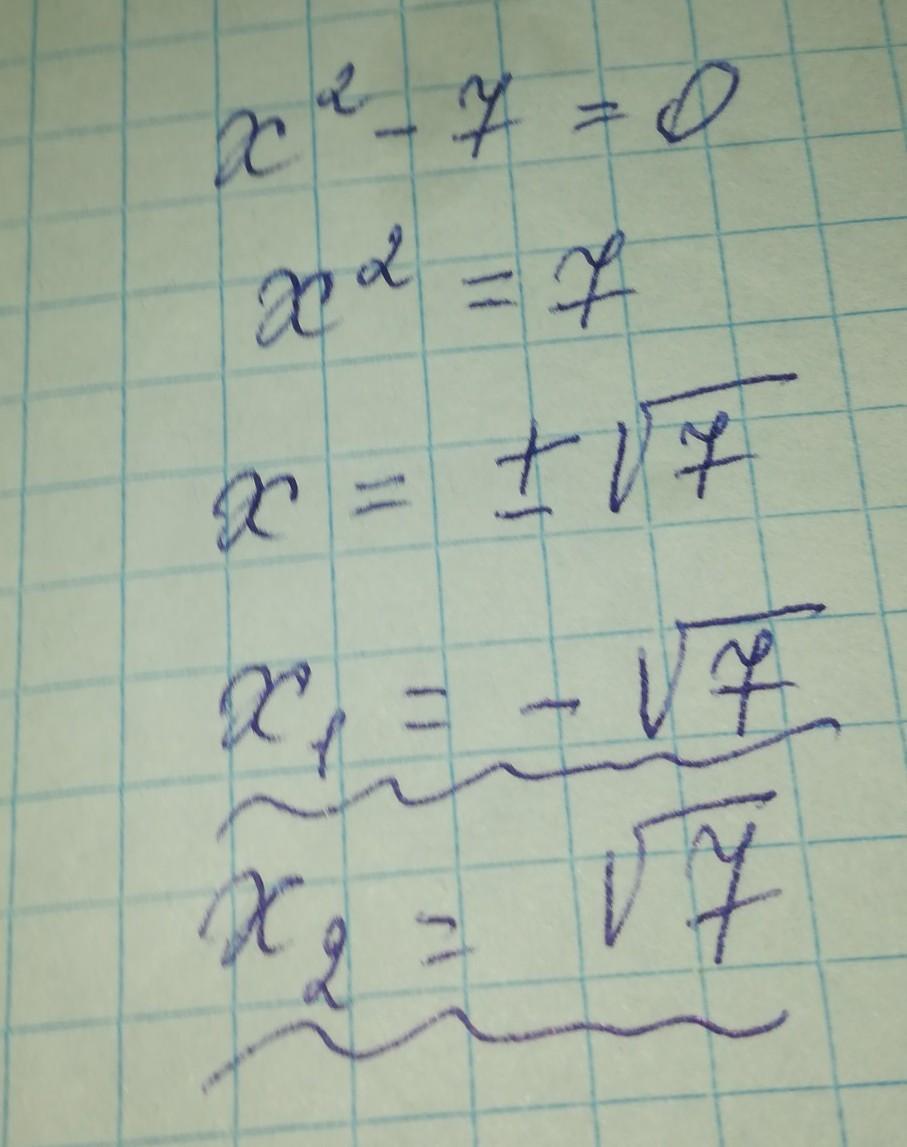 x² - 7 = 0
x² = 7
x = ± √7
x₁ = - √7
x₂ = √7